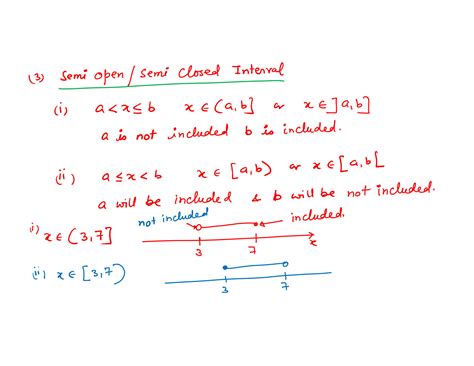 (3) Semi open / Semi Closed Interval
(i) a < x ≤ b x ∈ (a, b] or x ∈ ]a, b]
a is not included b is included.
(ii) a ≤ x < b x ∈ [a, b) or x ∈ [a, b[
a will be included & b will be not included.
not included included.
i) x ∈ (3, 7]
3 7 x
(ii) x ∈ [3, 7)
3 7